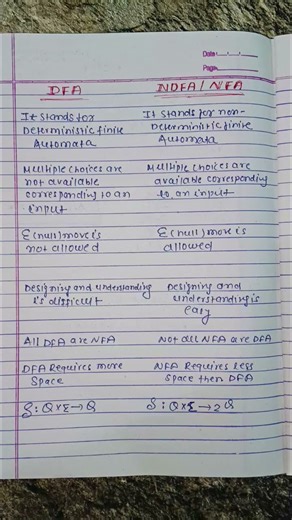 Date:__/__/__
Page____
DFA
NDFA / NFA
It stands for
Deterministic finite
Automata
It stands for non-
Deterministic finite
Automata
Multiple choices are
not available
corresponding to an
input
Multiple choices are
available corresponding
to an input
Ɛ (null) move is
not allowed
Ɛ (null) move is
allowed
Designing and understanding
is difficult
Designing and
understanding is
easy
All DFA are NFA
Not all NFA are DFA
DFA Requires more
Space
NFA Requires less
Space then DFA
δ: Q×Σ→Q
δ: Q×Σ→2Q